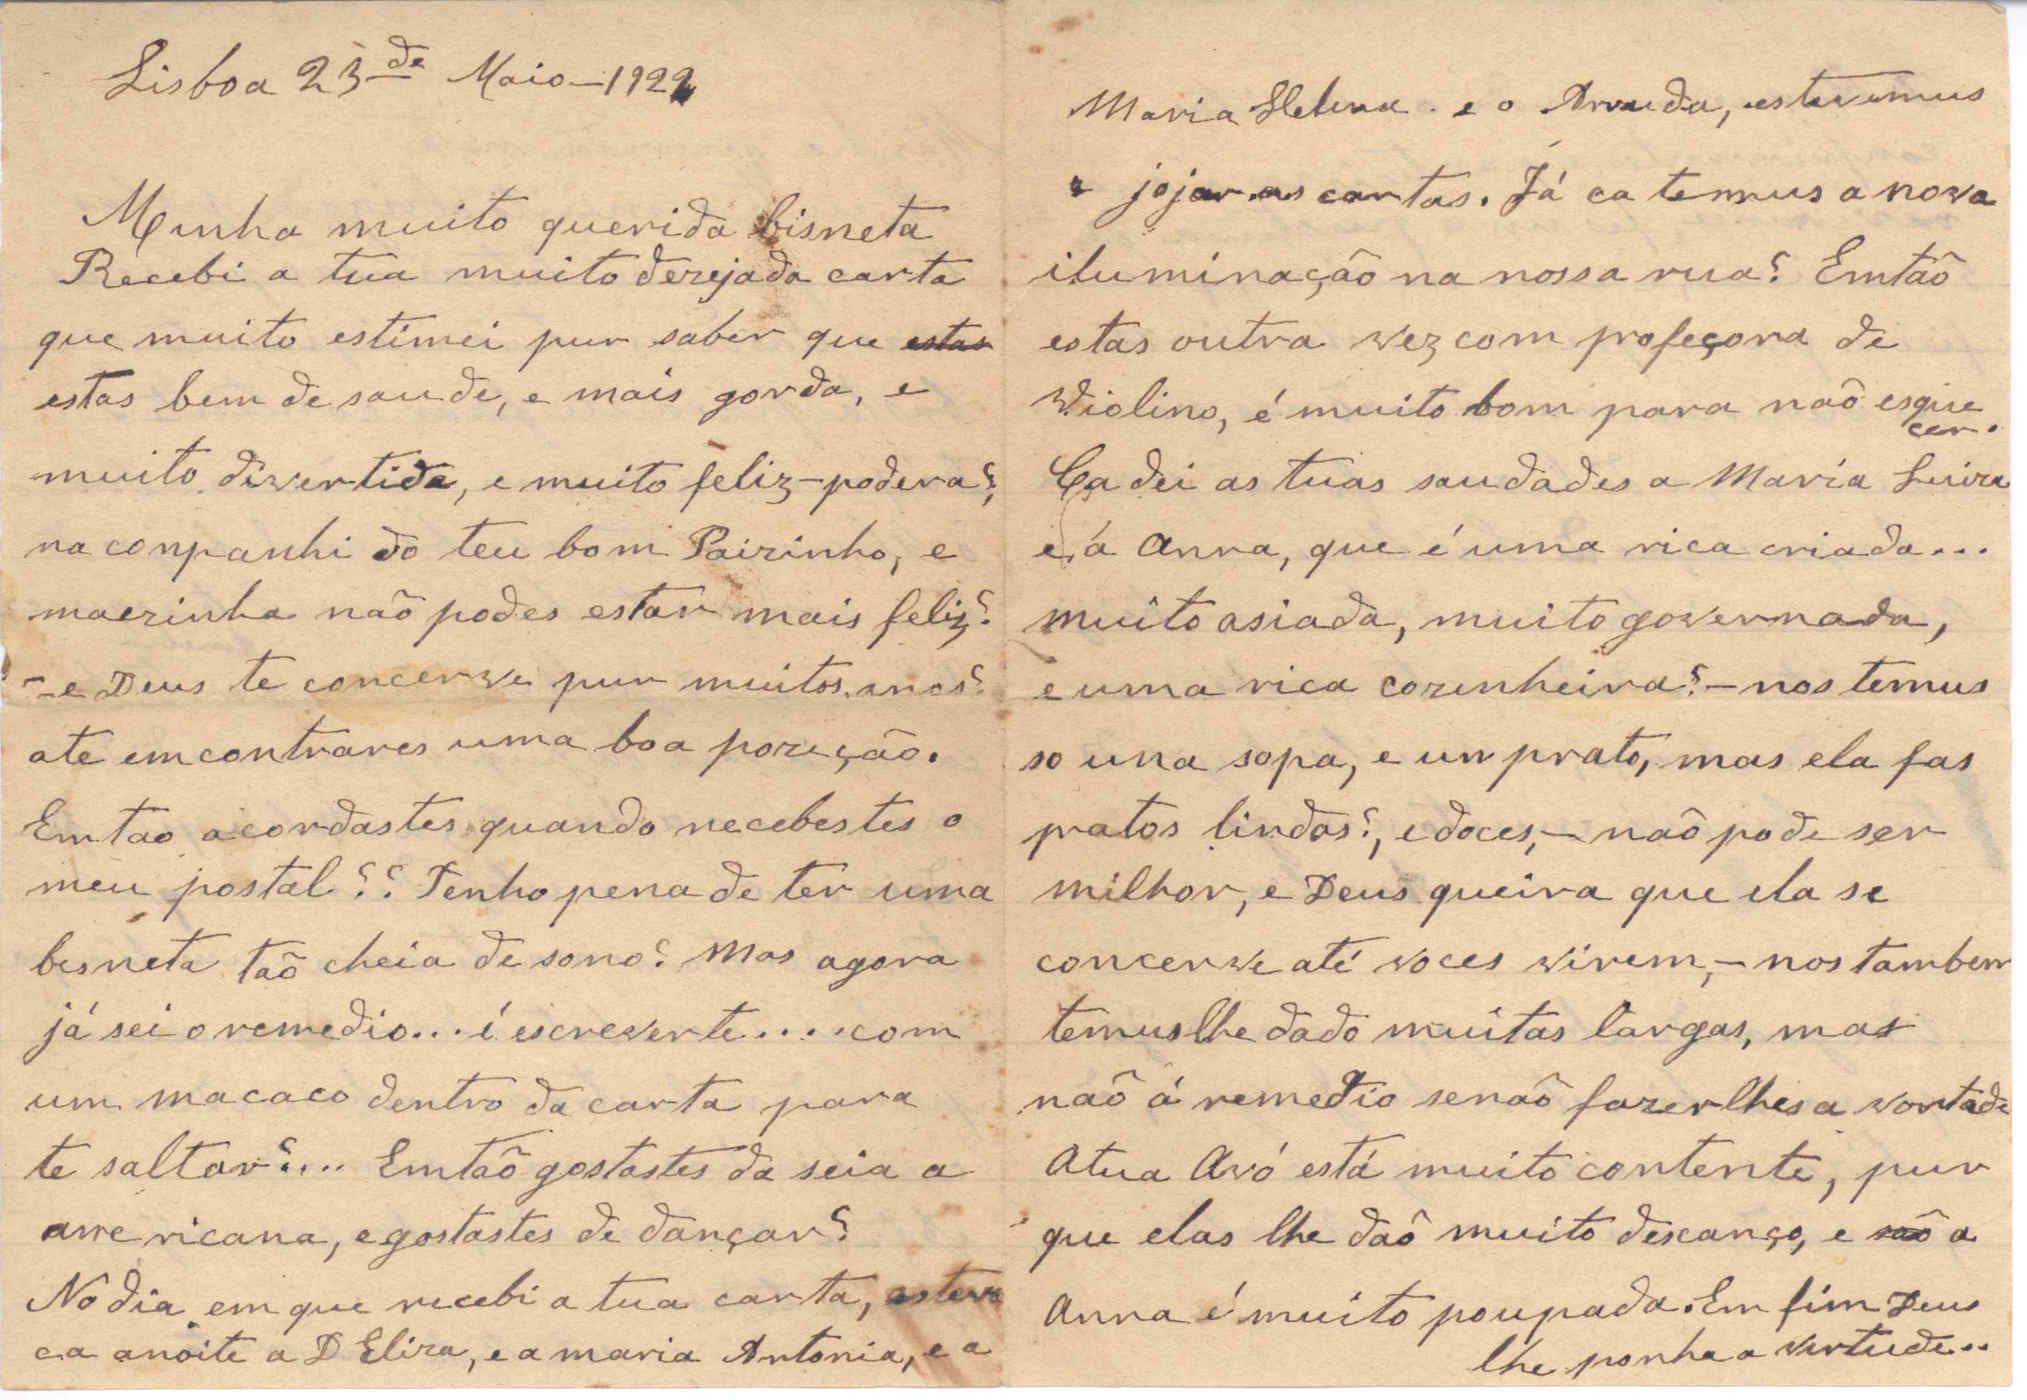 Lisboa 23 de Maio-1922
Minha muito querida bisneta
Recebi a tua muito dezejada carta
que muito estimei pur saber que estas
estas bem de saude, e mais gorda, e
muito divertida, e muito feliz-podera?,
na conpanhi do teu bom Paizinho, e
maezinha naõ podes estar mais feliz?
-e Deus te concerve pur muitos anos?
ate emcontrares uma boa pozição.
Emtao acordastes quando recebestes o
meu postal?? Tenho pena de ter uma
besneta taõ cheia de sono? Mas agora
já sei o remedio... é escreverte.... com
um macaco dentro da carta para
te saltar?... Emtaõ gostastes da seia a
americana, e gostastes de dançar?
No dia em que recebi a tua carta, esteve
ca anoite a D Eliza, e a maria Antonia, e a
Maria Helena . e o Arruda, estivemus
a jojar as cartas. Já ca temus a nova
iluminação na nossa rua? Emtaõ
estas outra vez com profeçora de
Violino, é muito bom para naõ esque
cer.
Ca dei as tuas saudades a Maria Luiza
e á Anna, que é uma rica criada...
muito asiada, muito governada,
e uma rica cozinheira?-nos temus
so una sopa, e un prato, mas ela fas
pratos lindos?, e doces,-naõ pode ser
milhor, e Deus queira que ela se
concerve até voces virem,-nos tambem
temuslhe dado muitas largas, mas
naõ á remedio senaõ fazerlhes a vontade
Atua Avó está muito contente, pur
que elas lhe daõ muito descanço, e saõ a
Anna é muito poupada. Em fim Deus
lhe ponha a vertude..